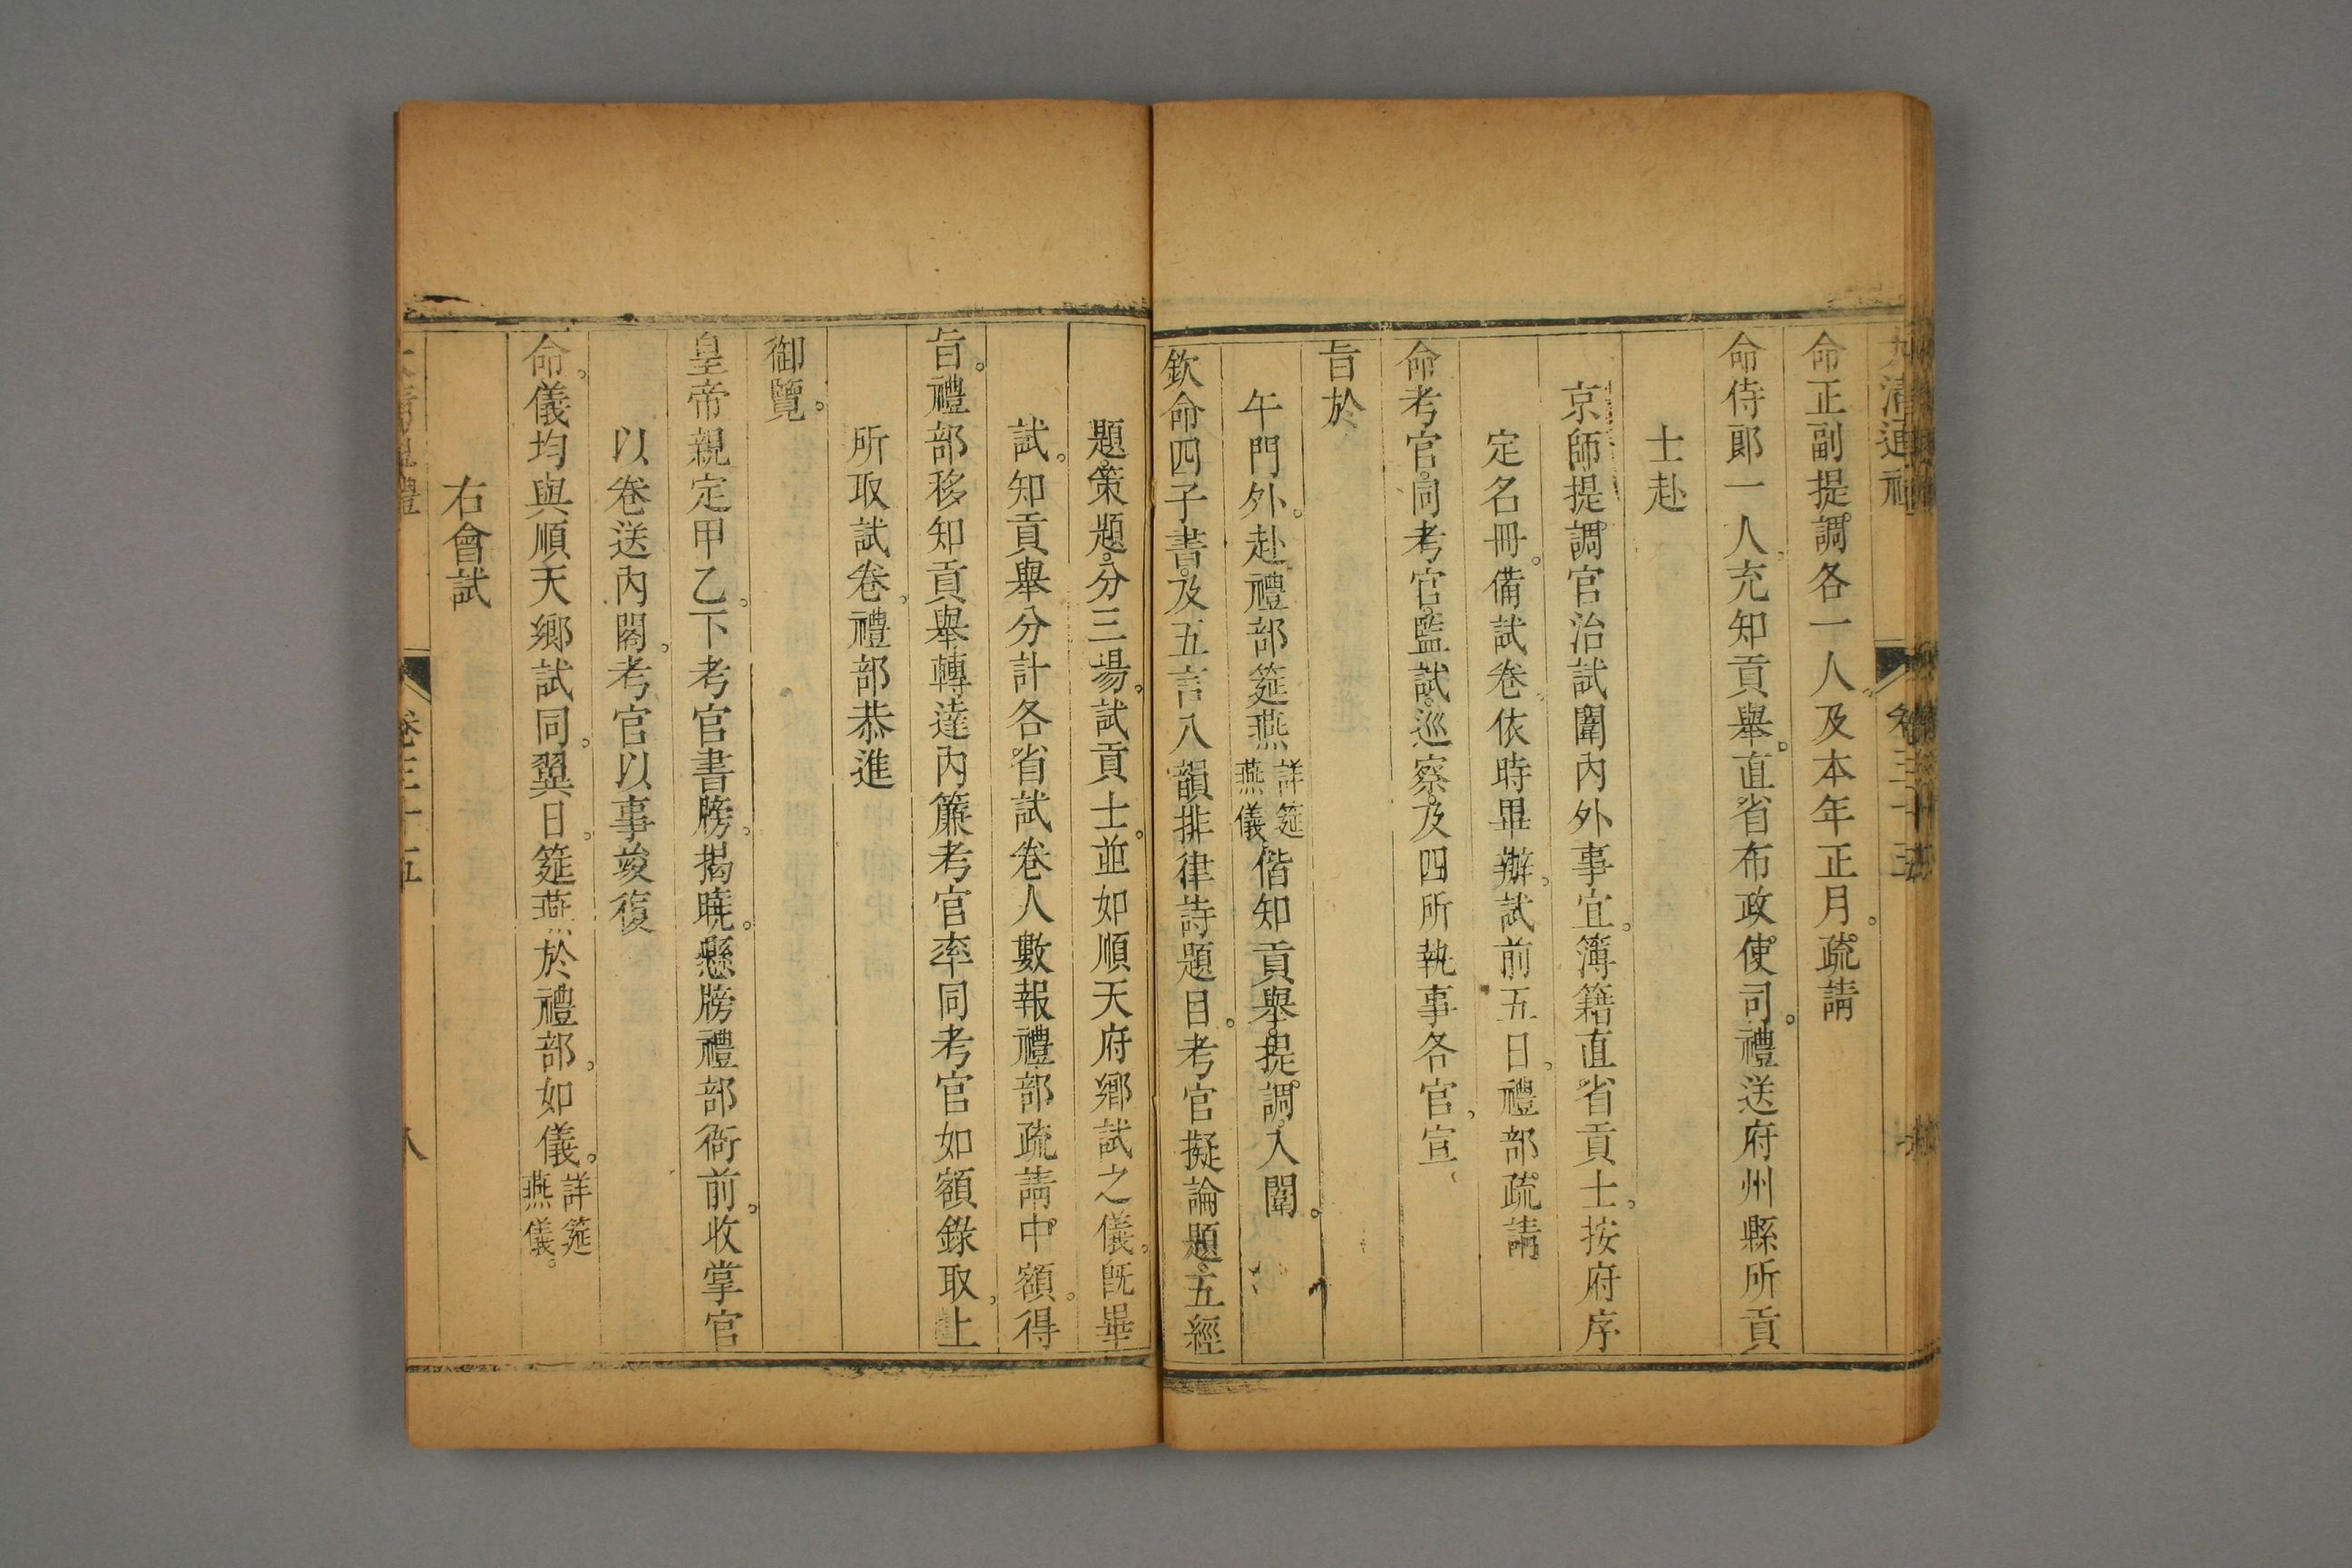 大清通禮 卷三十五
命正副提調各一人。及本年正月。疏請
命侍郎一人。充知貢舉。直省布政使司。禮送府州縣所貢
士赴
京師提調官治試闈內外事宜。簿籍直省貢士。按府序
定名冊。備試卷。依時畢辦。試前五日。禮部疏請
命考官。同考官。監試。巡察。及四所執事各官。宣
旨於
午門外。赴禮部筵燕詳筵燕儀偕知貢舉。提調。入闈。
欽命四子書。及五言八韻排律詩題目。考官擬論題。五經
題。策題。分三場。試貢士。並如順天府鄉試之儀。既畢
試。知貢舉分計各省試卷人數報禮部疏請中額。得
旨。禮部移知貢舉轉達內簾考官率同考官如額錄取。上
所取試卷。禮部恭進
御覽。
皇帝親定甲乙。下考官書牓。揭曉。懸牓禮部衙前。收掌官
以卷送內閣。考官以事竣復
命。儀均與順天鄉試同。翼日。筵燕於禮部。如儀。詳筵燕儀。
右會試
卷三十五 八